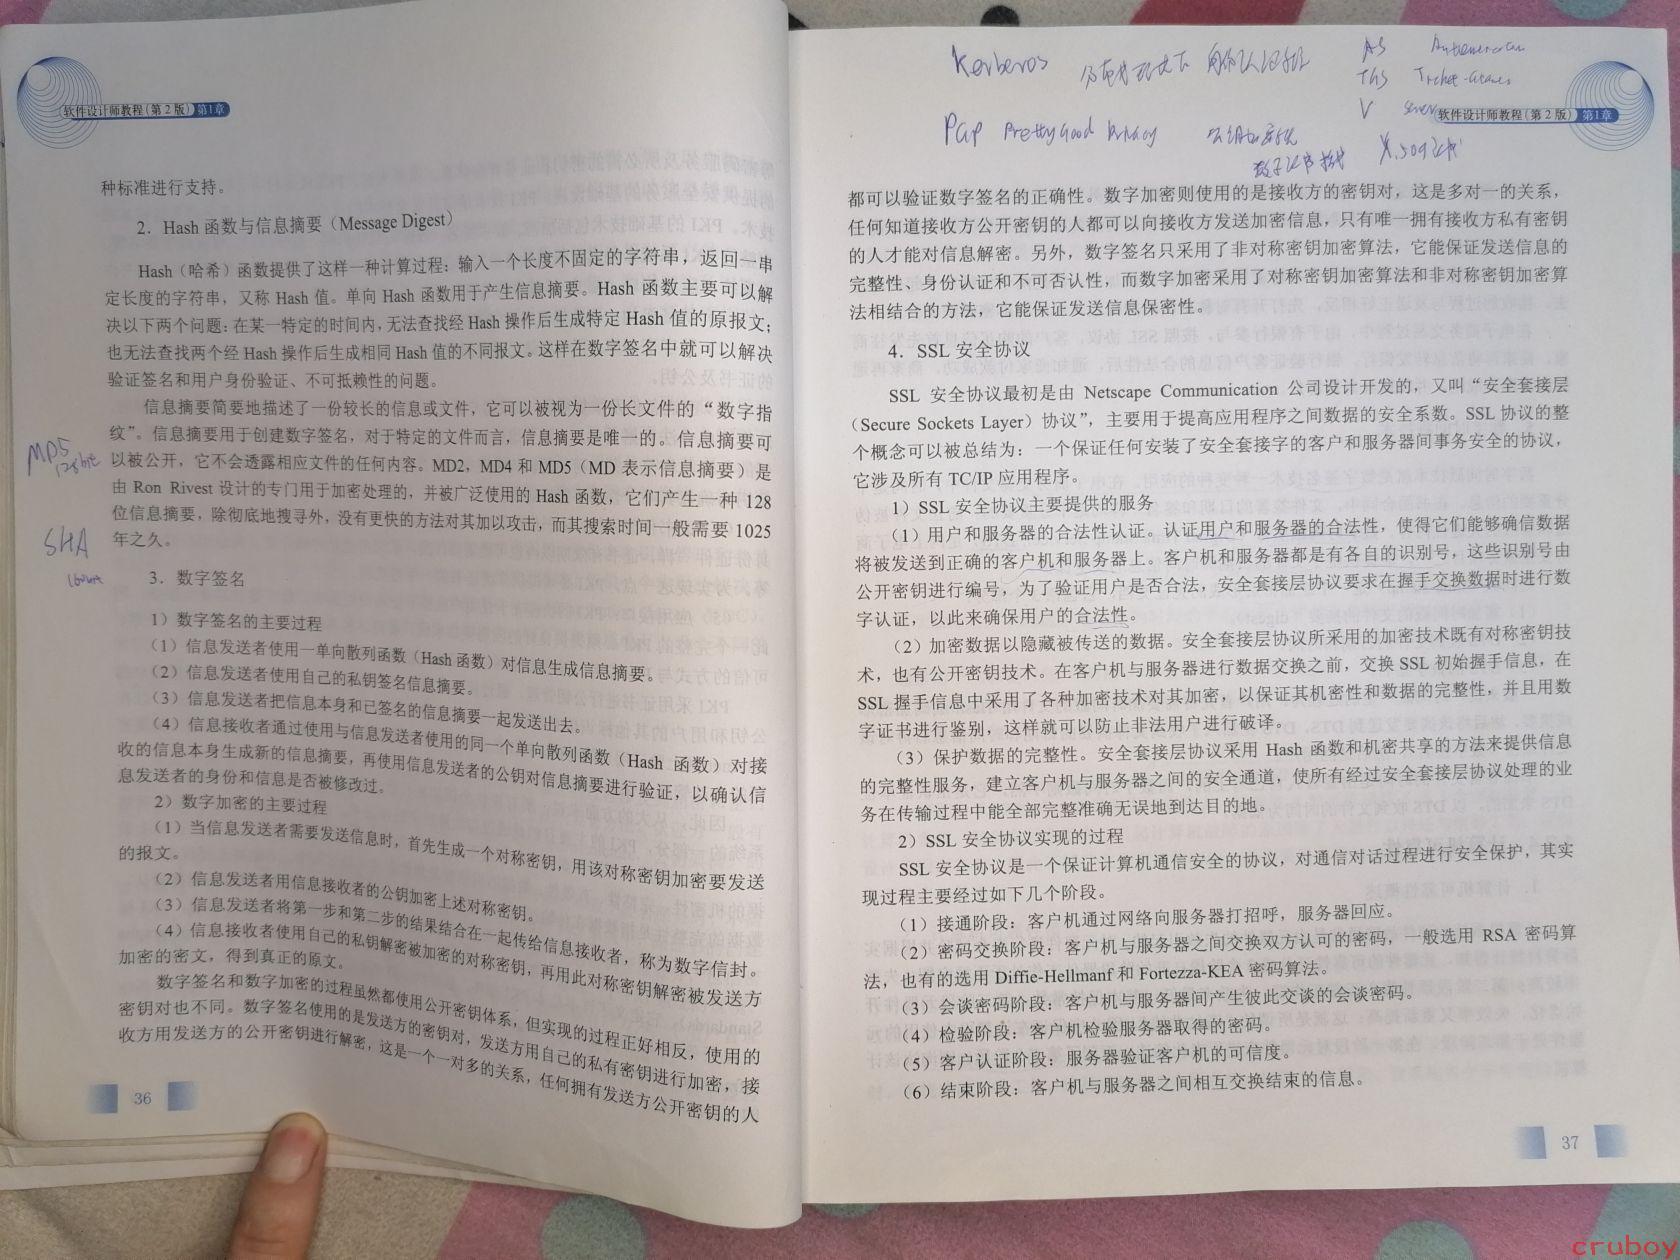 软件设计师教程(第2版) 第1章
种标准进行支持。
2. Hash 函数与信息摘要（Message Digest）
Hash（哈希）函数提供了这样一种计算过程：输入一个长度不固定的字符串，返回一串
定长度的字符串，又称 Hash 值。单向 Hash 函数用于产生信息摘要。Hash 函数主要可以解
决以下两个问题：在某一特定的时间内，无法查找经 Hash 操作后生成特定 Hash 值的原报文；
也无法查找两个经 Hash 操作后生成相同 Hash 值的不同报文。这样在数字签名中就可以解决
验证签名和用户身份验证、不可抵赖性的问题。
信息摘要简要地描述了一份较长的信息或文件，它可以被视为一份长文件的“数字指
纹”。信息摘要用于创建数字签名，对于特定的文件而言，信息摘要是唯一的。信息摘要可
以被公开，它不会透露相应文件的任何内容。MD2，MD4 和 MD5（MD 表示信息摘要）是
由 Ron Rivest 设计的专门用于加密处理的，并被广泛使用的 Hash 函数，它们产生一种 128
位信息摘要，除彻底地搜寻外，没有更快的方法对其加以攻击，而其搜索时间一般需要 1025
年之久。
MD5
128bit
SHA
160bit
3. 数字签名
1）数字签名的主要过程
（1）信息发送者使用一单向散列函数（Hash 函数）对信息生成信息摘要。
（2）信息发送者使用自己的私钥签名信息摘要。
（3）信息发送者把信息本身和已签名的信息摘要一起发送出去。
（4）信息接收者通过使用与信息发送者使用的同一个单向散列函数（Hash 函数）对接
收的信息本身生成新的信息摘要，再使用信息发送者的公钥对信息摘要进行验证，以确认信
息发送者的身份和信息是否被修改过。
2）数字加密的主要过程
（1）当信息发送者需要发送信息时，首先生成一个对称密钥，用该对称密钥加密要发送
的报文。
（2）信息发送者用信息接收者的公钥加密上述对称密钥。
（3）信息发送者将第一步和第二步的结果结合在一起传给信息接收者，称为数字信封。
（4）信息接收者使用自己的私钥解密被加密的对称密钥，再用此对称密钥解密被发送方
加密的密文，得到真正的原文。
数字签名和数字加密的过程虽然都使用公开密钥体系，但实现的过程正好相反，使用的
密钥对也不同。数字签名使用的是发送方的密钥对，发送方用自己的私有密钥进行加密，接
收方用发送方的公开密钥进行解密，这是一个一对多的关系，任何拥有发送方公开密钥的人
36
Kerberos 身份认证 AS
TGS Ticket-
V Server
PGP Pretty Good Privacy
数字证书 X.509证书
软件设计师教程(第2版) 第1章
都可以验证数字签名的正确性。数字加密则使用的是接收方的密钥对，这是多对一的关系，
任何知道接收方公开密钥的人都可以向接收方发送加密信息，只有唯一拥有接收方私有密钥
的人才能对信息解密。另外，数字签名只采用了非对称密钥加密算法，它能保证发送信息的
完整性、身份认证和不可否认性，而数字加密采用了对称密钥加密算法和非对称密钥加密算
法相结合的方法，它能保证发送信息保密性。
4. SSL 安全协议
SSL 安全协议最初是由 Netscape Communication 公司设计开发的，又叫“安全套接层
（Secure Sockets Layer）协议”，主要用于提高应用程序之间数据的安全系数。SSL 协议的整
个概念可以被总结为：一个保证任何安装了安全套接字的客户和服务器间事务安全的协议，
它涉及所有 TC/IP 应用程序。
1）SSL 安全协议主要提供的服务
（1）用户和服务器的合法性认证。认证用户和服务器的合法性，使得它们能够确信数据
将被发送到正确的客户机和服务器上。客户机和服务器都是有各自的识别号，这些识别号由
公开密钥进行编号，为了验证用户是否合法，安全套接层协议要求在握手交换数据时进行数
字认证，以此来确保用户的合法性。
（2）加密数据以隐藏被传送的数据。安全套接层协议所采用的加密技术既有对称密钥技
术，也有公开密钥技术。在客户机与服务器进行数据交换之前，交换 SSL 初始握手信息，在
SSL 握手信息中采用了各种加密技术对其加密，以保证其机密性和数据的完整性，并且用数
字证书进行鉴别，这样就可以防止非法用户进行破译。
（3）保护数据的完整性。安全套接层协议采用 Hash 函数和机密共享的方法来提供信息
的完整性服务，建立客户机与服务器之间的安全通道，使所有经过安全套接层协议处理的业
务在传输过程中能全部完整准确无误地到达目的地。
2）SSL 安全协议实现的过程
SSL 安全协议是一个保证计算机通信安全的协议，对通信对话过程进行安全保护，其实
现过程主要经过如下几个阶段。
（1）接通阶段：客户机通过网络向服务器打招呼，服务器回应。
（2）密码交换阶段：客户机与服务器之间交换双方认可的密码，一般选用 RSA 密码算
法，也有的选用 Diffie-Hellmanf 和 Fortezza-KEA 密码算法。
（3）会谈密码阶段：客户机与服务器间产生彼此交谈的会谈密码。
（4）检验阶段：客户机检验服务器取得的密码。
（5）客户认证阶段：服务器验证客户机的可信度。
（6）结束阶段：客户机与服务器之间相互交换结束的信息。
37
cruboy